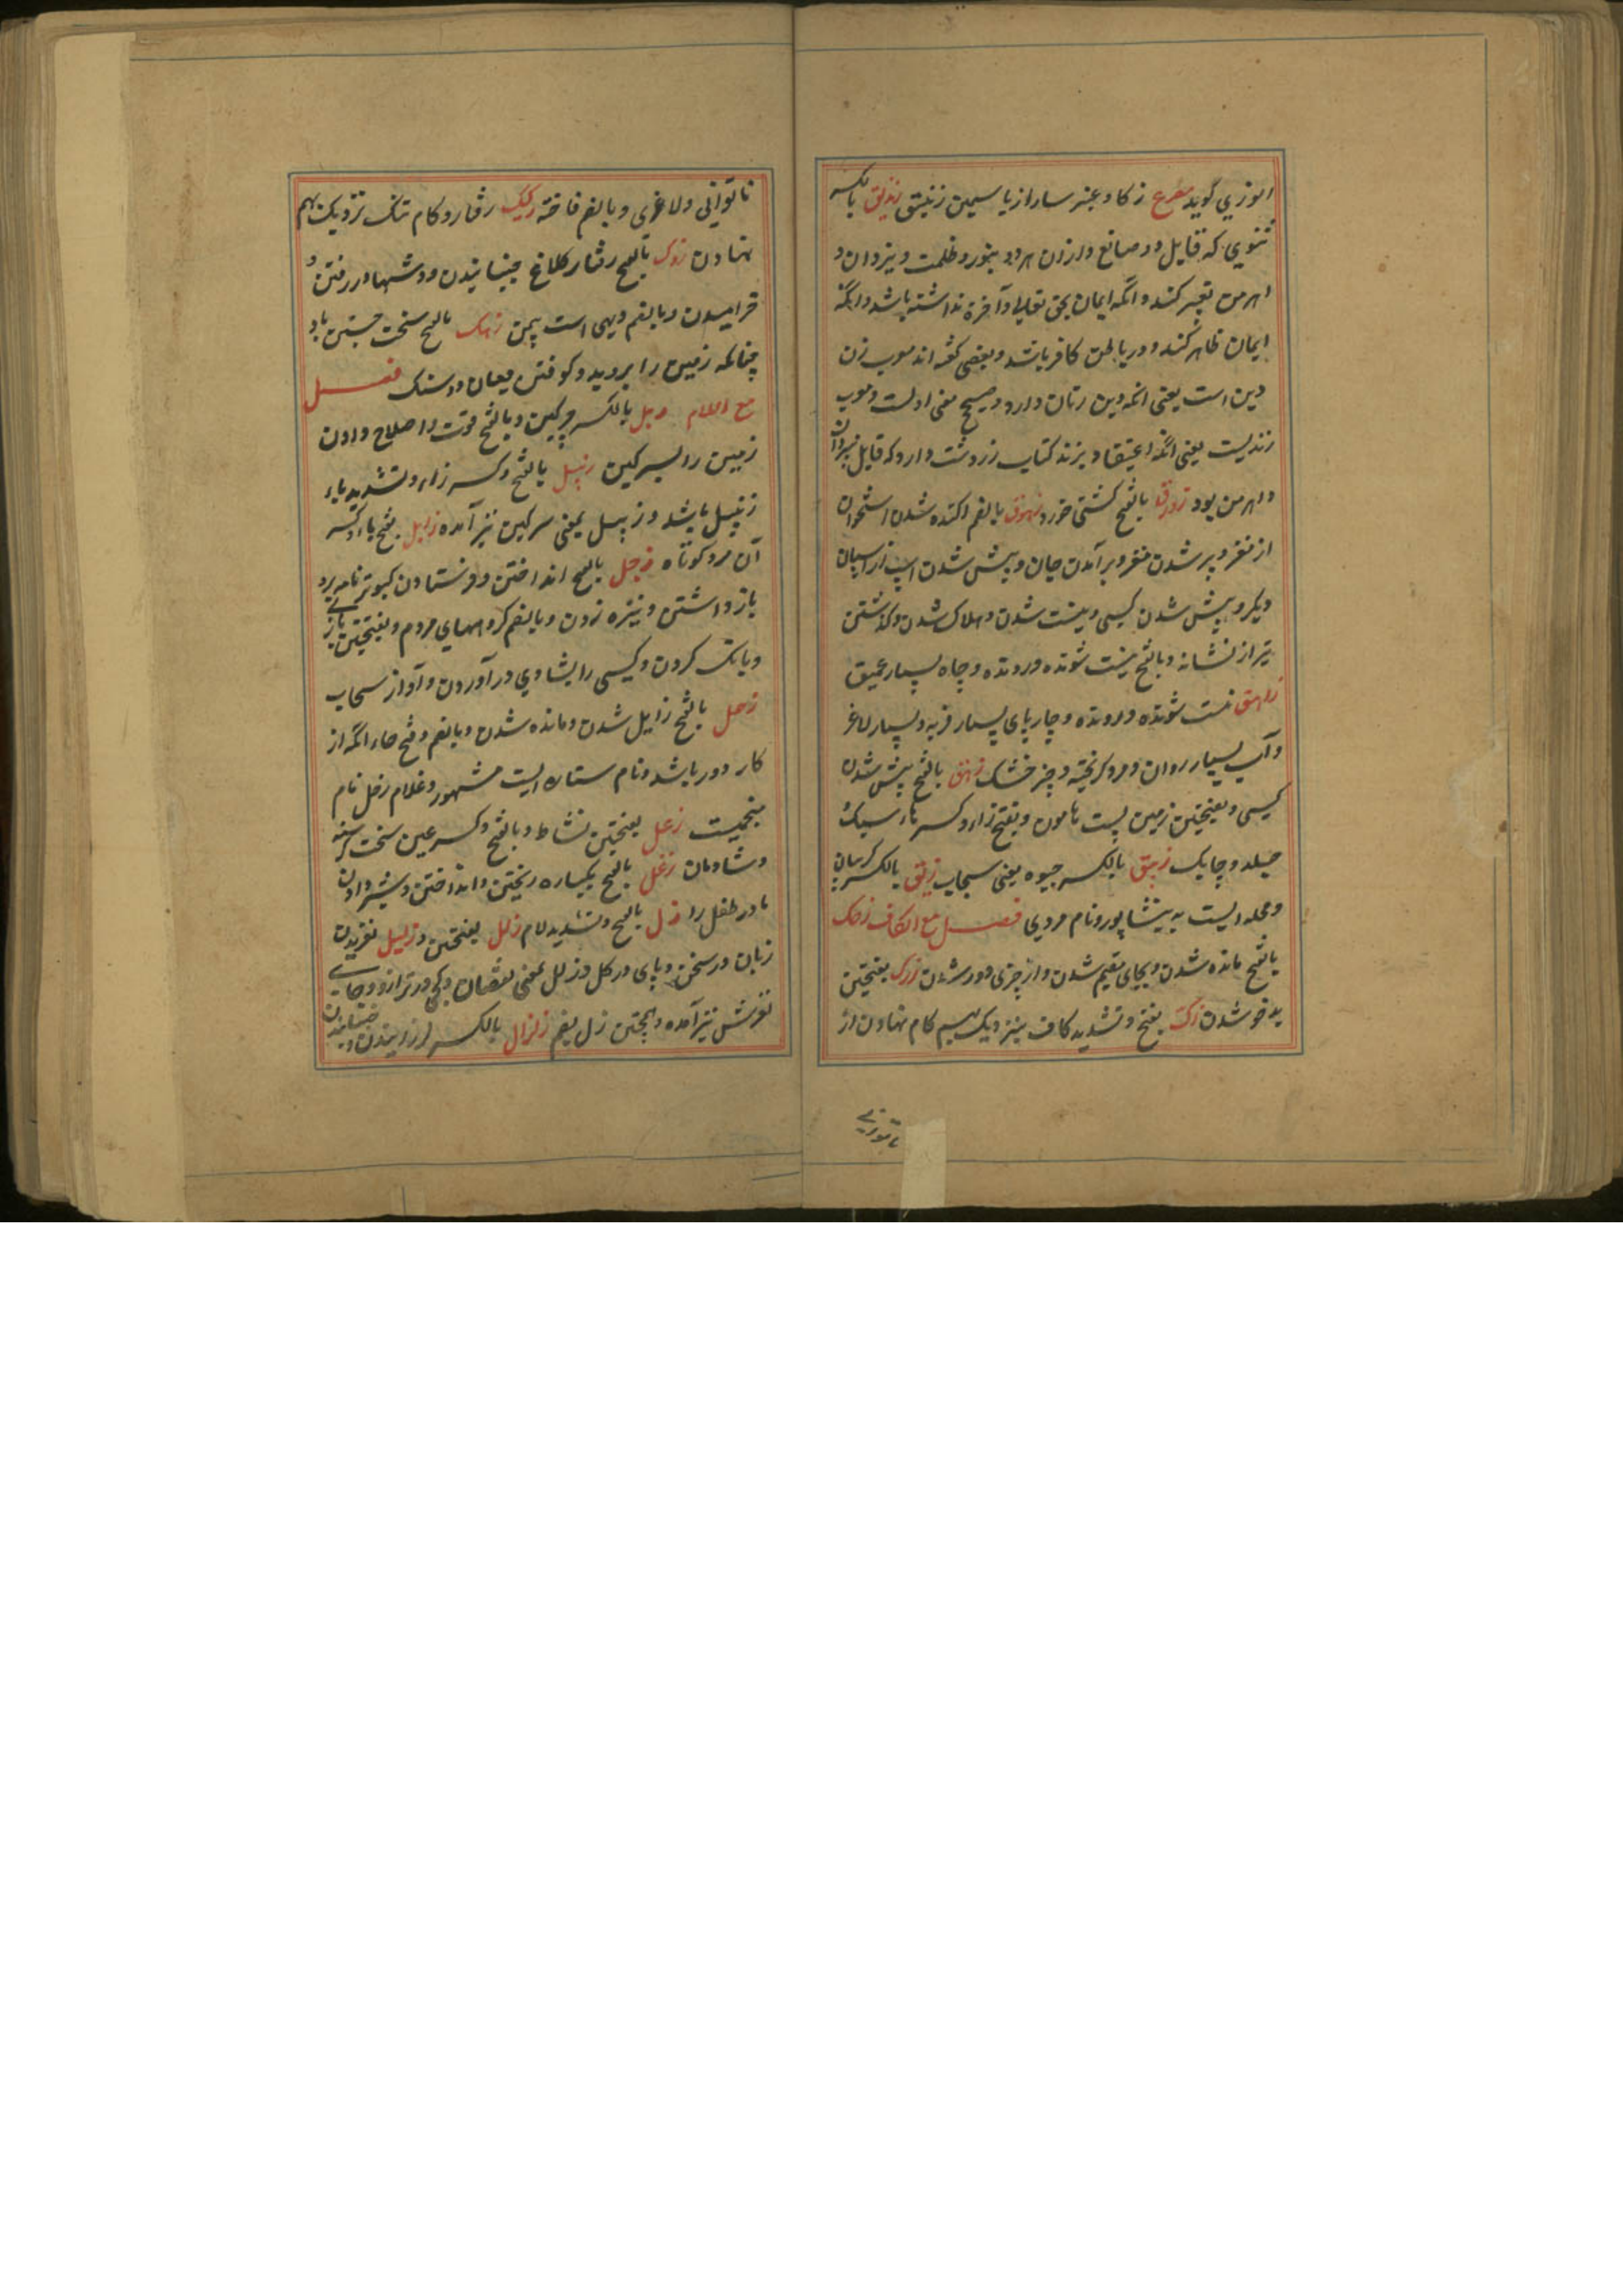 انوری گوید مصرع ز کا و عنبر سارا ز یاسمین زنبق زندیق بالکسر
ثنوی که قایل دو صانع و ازان هر دو بنور و ظلمت و یزدان و
اهرمن تعبیر کنند و انکه ایمان بحق تعالی و آخرة نداشته باشد و انکه
ایمان ظاهر کند و در باطن کافر باشد و بعضی گفته اند معرب زن
دین است یعنی انکه دین زنان دارد و صحیح معنی اولست و معرب
زندیست یعنی انکه اعتقاد بزند کتاب زردشت دارد که قایل بیزدان
و اهرمن بود زورق بالفتح کشتی خورد زهوق بالضم اکنده شدن استخوان
از مغز و پر شدن مغز و بر آمدن جان و پیش شدن اسپ از اسپان
دیگر و پیش شدن کسی و نیست شدن و هلاک شدن و گذشتن
تیر از نشانه و بالفتح نیست شونده و رونده و چاه بسیار عمیق
زاهق نیست شونده و رونده و چارپای بسیار فربه و بسیار لاغر
و آب بسیار روان و مرد گریخته و چیز خشک زهق بالفتح پیش شدن
کسی و بفتحتین زمین پست نامون و بفتح زاء و کسر هاء سبک
جلد و چابک زیبق بالکسر جیوه یعنی سیماب زیق بالکسر گریبان
و محله ایست به نیشاپور و نام مردی فصل مع الکاف زحک
بالفتح مانده شدن و بجای مقیم شدن و از چیزی دور شدن زرک بفتحتین
بدخو شدن زک بفتح و تشدید کاف نزدیک بهم کام نهادن از
ناتوانی
ناتوانی و لاغری و بالضم فاخته زکیک رفتار و کام تنک نزدیک بهم
نهادن زوک بالفتح رفتار کلاغ جنبانیدن دوشها در رفتن و
خرامیدن و بالضم دیهی است بیمن زهک بالفتح سخت جستن باد
چنانکه زمین را بردید و کوفتن میان دو سنک فصل
مع اللام زبل بالکسر سرکین و بالفتح قوت و اصلاح دادن
زمین را بسرکین زبیل بالفتح و کسر زاء و تشدید باء
زنبیل باشد و زبیل بمعنی سرکین نیز آمده زابل بفتح باء و کسر
آن مرد کوتاه زجل بالفتح انداختن و فرستادن کبوتر نامه برد
باز داشتن و نیزه زدن و بالضم کروههای مردم و بفتحتین بازی
و بانک کردن و کسی را بشادی در آوردن و آواز سحاب
زحل بالفتح زایل شدن و مانده شدن و بالضم و فتح حاء انکه از
کار دور باشد و نام ستاره ایست مشهور و غلام زحل نام
منجمیست زعل بفتحتین نشاط و بالفتح و کسر عین سخت گرسنه
و شادمان زغل بالفتح یکباره ریختن و انداختن و شیر دادن
مادر طفل را زل بالفتح و تشدید لام زلل بفتحتین و زلیل لغزیدن
زبان در سخن و پای در کل و زلل بمعنی نقصان و کمی در ترازو و جای
لغزش نیز آمده و همچنین زل بضم زلزال بالکسر لرزانیدن و جنبانیدن